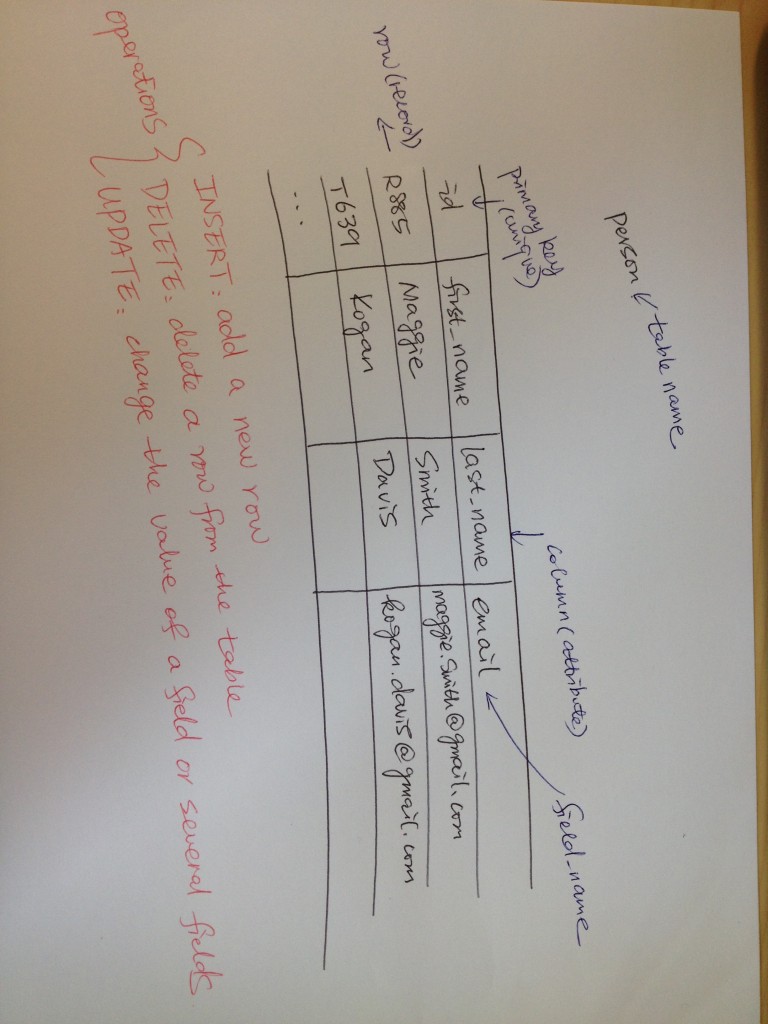 person ← table name
primary key
(unique)
column (attribute)
field_name
id first_name last_name email
row (record)
R885 Maggie Smith maggie.smith@gmail.com
T639 Kogan Davis kogan.davis@gmail.com
...
operations
INSERT: add a new row
DELETE: delete a row from the table
UPDATE: change the value of a field or several fields.